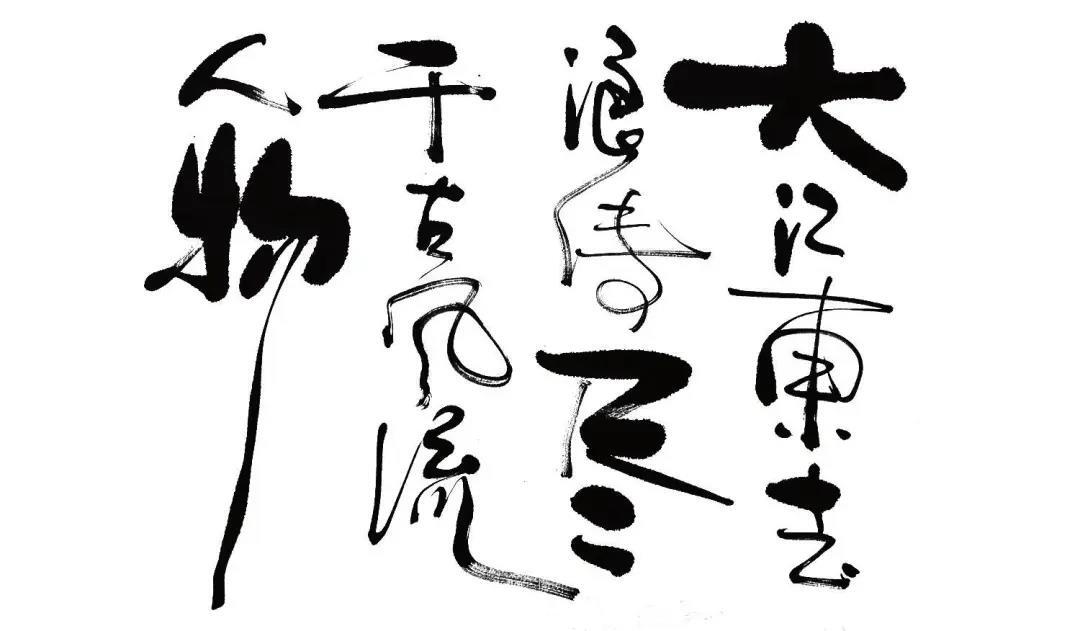 大江東去
浪淘尽
千古风流
人物